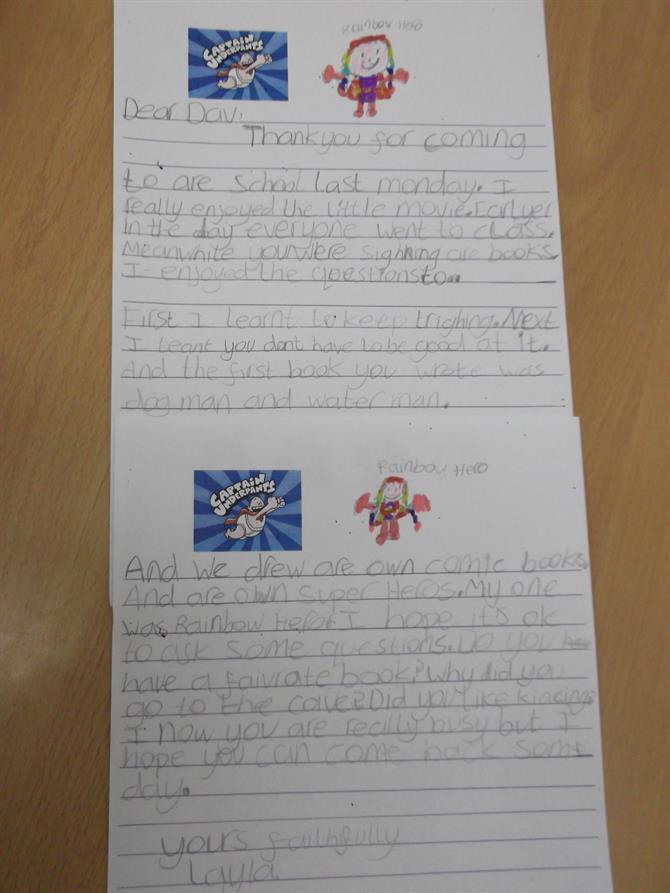 CAPTAIN UNDERPANTS
Rainbow Hero
Dear Dav,
Thankyou for coming
to are school last monday. I
really enjoyed the little movie. Earlyer
in the day everyone went to class.
Meanwhite you were sighning are books.
I enjoyed the questions to.
First I learnt to keep trighing. Next
I leant you dont have to be good at it.
And the first book you wrote was
dog man and water man.
CAPTAIN UNDERPANTS
Rainbow Hero
And we drew are own comic books.
And are own Super Heros. My one
was Rainbow Hero. I hope it's ok
to ask some questions. Do you
have a faivrate book? Why did you
go to the cave? Did you like
I now you are really busy but I
hope you can come back some
day.
yours faithfully
Layla